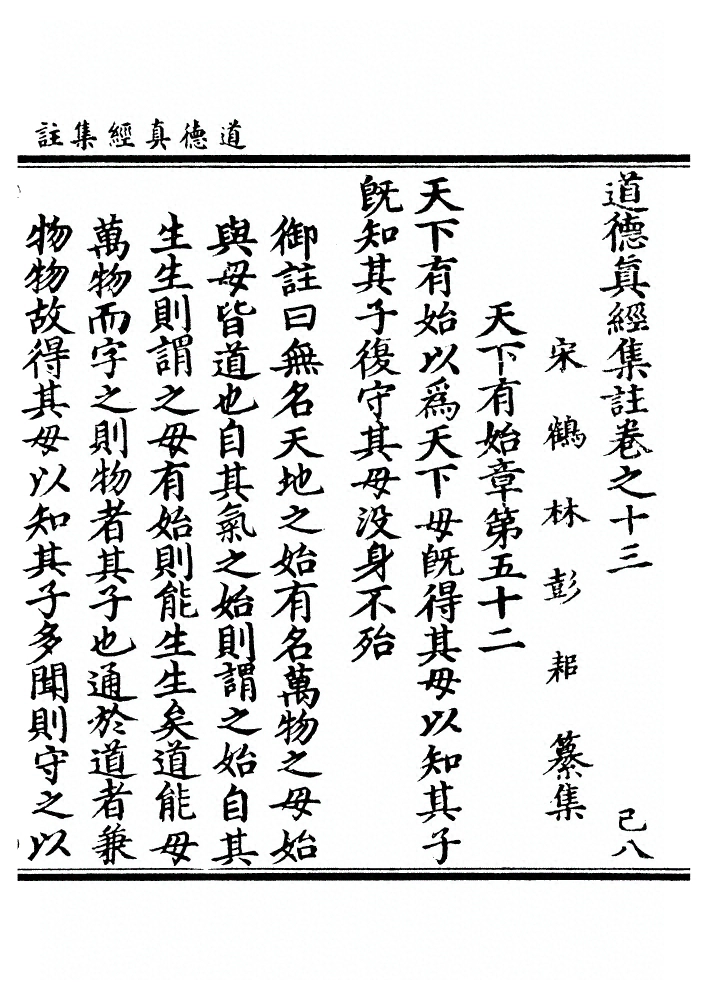 道德真經集註
道德眞經集註卷之十三 己八
宋鶴林彭耜纂集
天下有始章第五十二
天下有始以爲天下母旣得其母以知其子
旣知其子復守其母没身不殆
御註曰無名天地之始有名萬物之母始
與母皆道也自其氣之始則謂之始自其
生生則謂之母有始則能生生矣道能母
萬物而字之則物者其子也通於道者兼
物物故得其母以知其子多聞則守之以